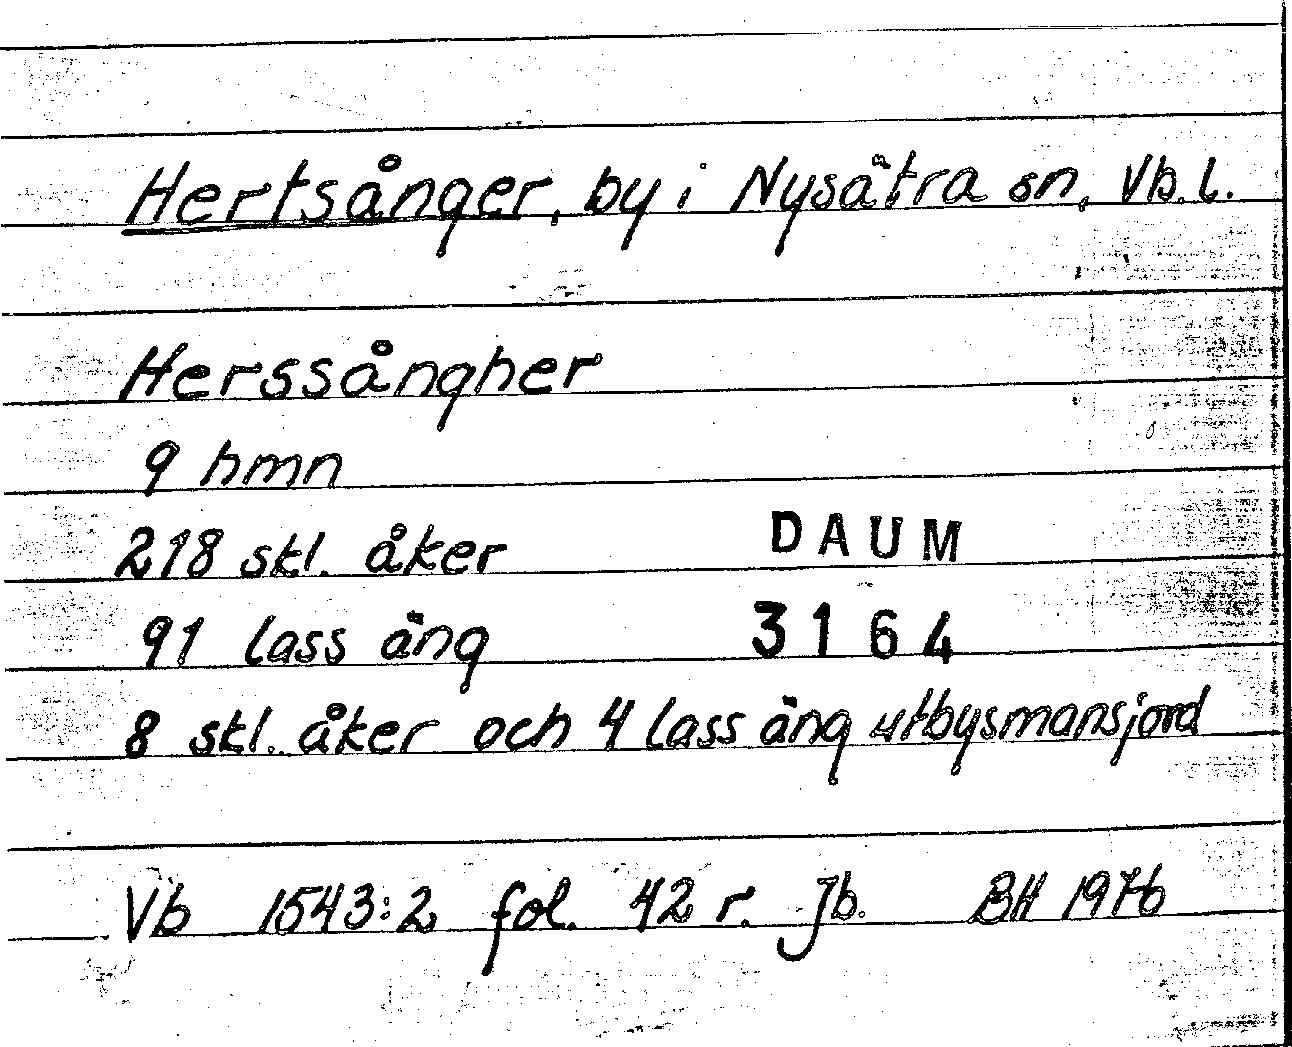 Hertsånger, by i Nysätra sn, Vb.l.
Herssångher
9 hmn
218 skl. åker
DAUM
91 lass äng
3164
8 skl. åker och 4 lass äng utbysmansjord
Vb 1543:2 fol. 42 r. Jb. BH 1976